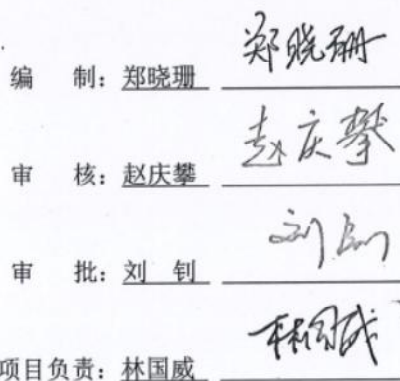 编 制：郑晓珊 郑晓珊
审 核：赵庆攀 赵庆攀
审 批：刘 钊 刘钊
项目负责：林国威 林国威